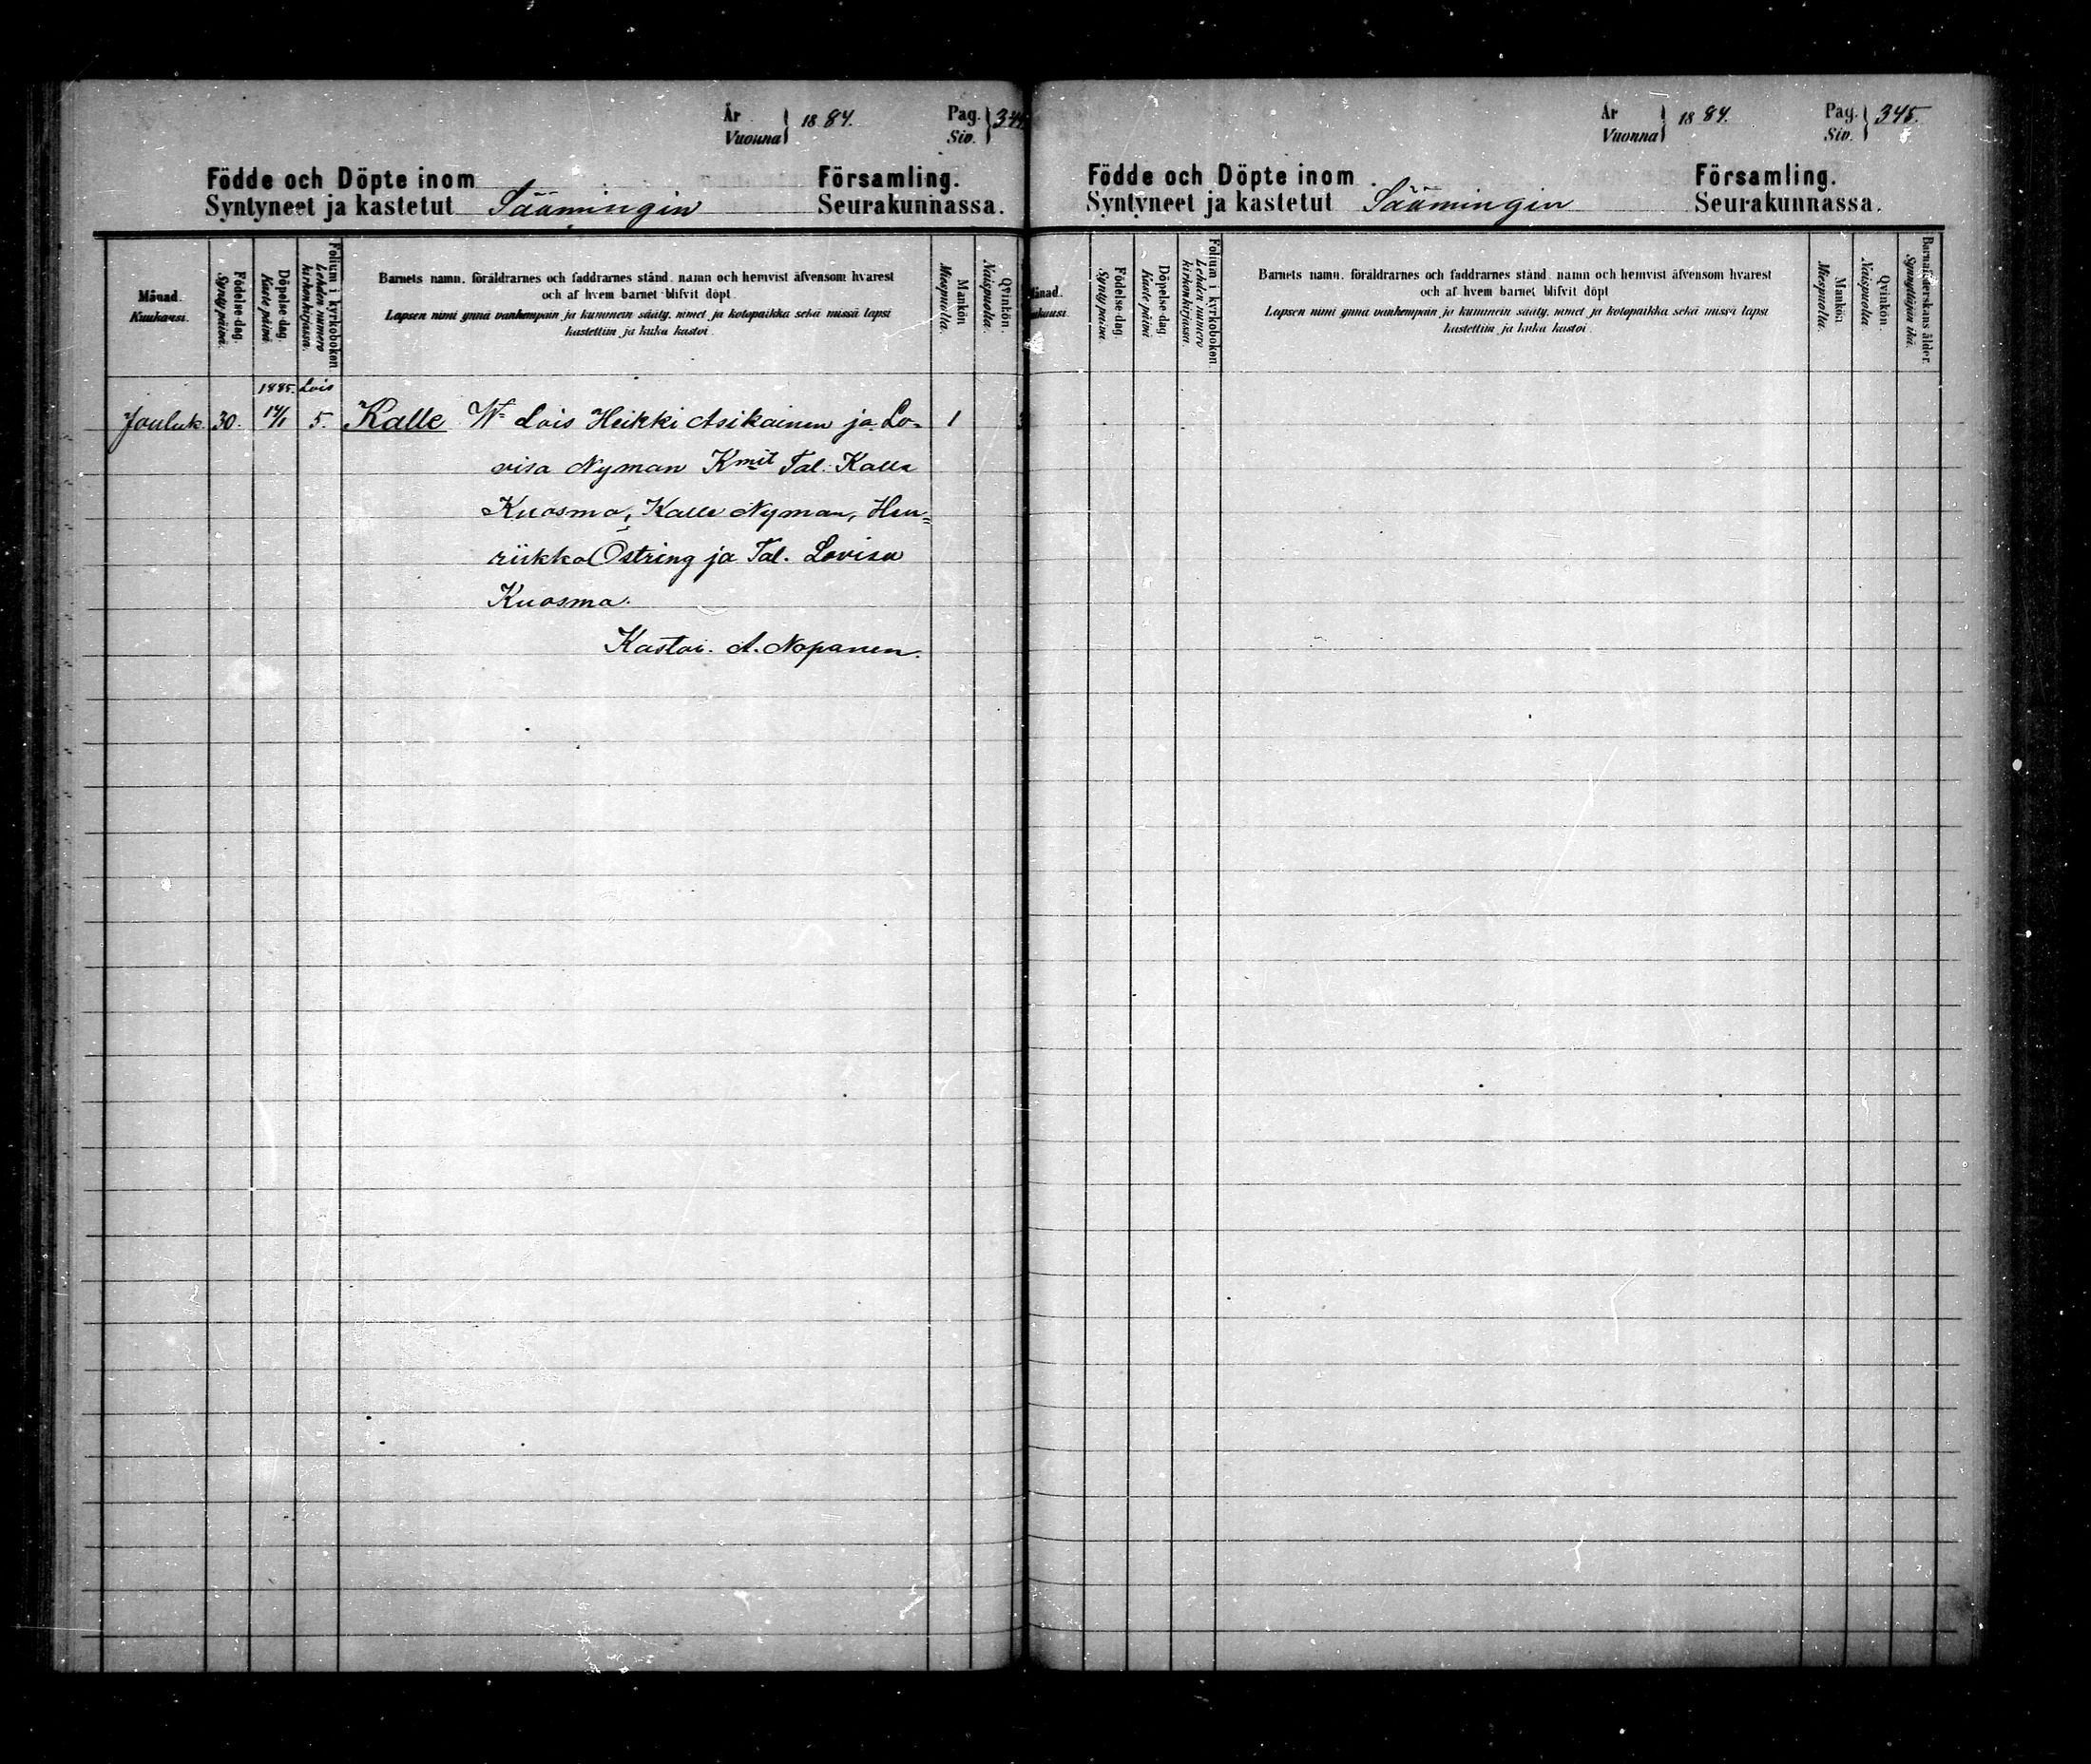 År
Vuonna } 1884.
Pag.
Siv. } 344
Födde och Döpte inom Församling.
Syntyneet ja kastetut Säämingin Seurakunnassa.
Månad.
Kuukausi.
Födelse-dag.
Syntypäivä.
Döpelse-dag.
Kaste päivä
Folium i kyrkoboken
Lehden numero
kirkonkirjassa.
Barnets namn, föräldrarnes och faddrarnes stånd, namn och hemvist äfvensom hvarest
och af hvem barnet blifvit döpt.
Lapsen nimi ynnä vanhempain ja kummein sääty, nimet ja kotopaikka sekä missä lapsi
kastettiin ja kuka kastoi.
Mankön
Miespuolta.
Qvinkön.
Naispuolta.
1885. Lois
Jouluk. 30. 14/1 5. Kalle Wt Lois Heikki Asikainen ja Lo= 1
visa Nyman Kmit Tal. Kalle
Kuosma, Kalle Nyman, Hen=
riikka Östring ja Tal. Lovisa
Kuosma.
Kastoi. A. Nopanen.
År
Vuonna } 1884.
Pag.
Siv. } 345.
Födde och Döpte inom Församling.
Syntyneet ja kastetut Säämingin Seurakunnassa.
ånad.
ukausi.
Födelse-dag.
Syntypäivä.
Döpelse-dag.
Kaste päivä
Folium i kyrkoboken
Lehden numero
kirkonkirjassa.
Barnets namn, föräldrarnes och faddrarnes stånd, namn och hemvist äfvensom hvarest
och af hvem barnet blifvit döpt
Lapsen nimi ynnä vanhempain ja kummein sääty, nimet ja kotopaikka sekä missä lapsi
kastettiin ja kuka kastoi.
Mankön
Miespuolta.
Qvinkön.
Naispuolta.
Barnaföderskans ålder.
Synnyttäjän ikä.